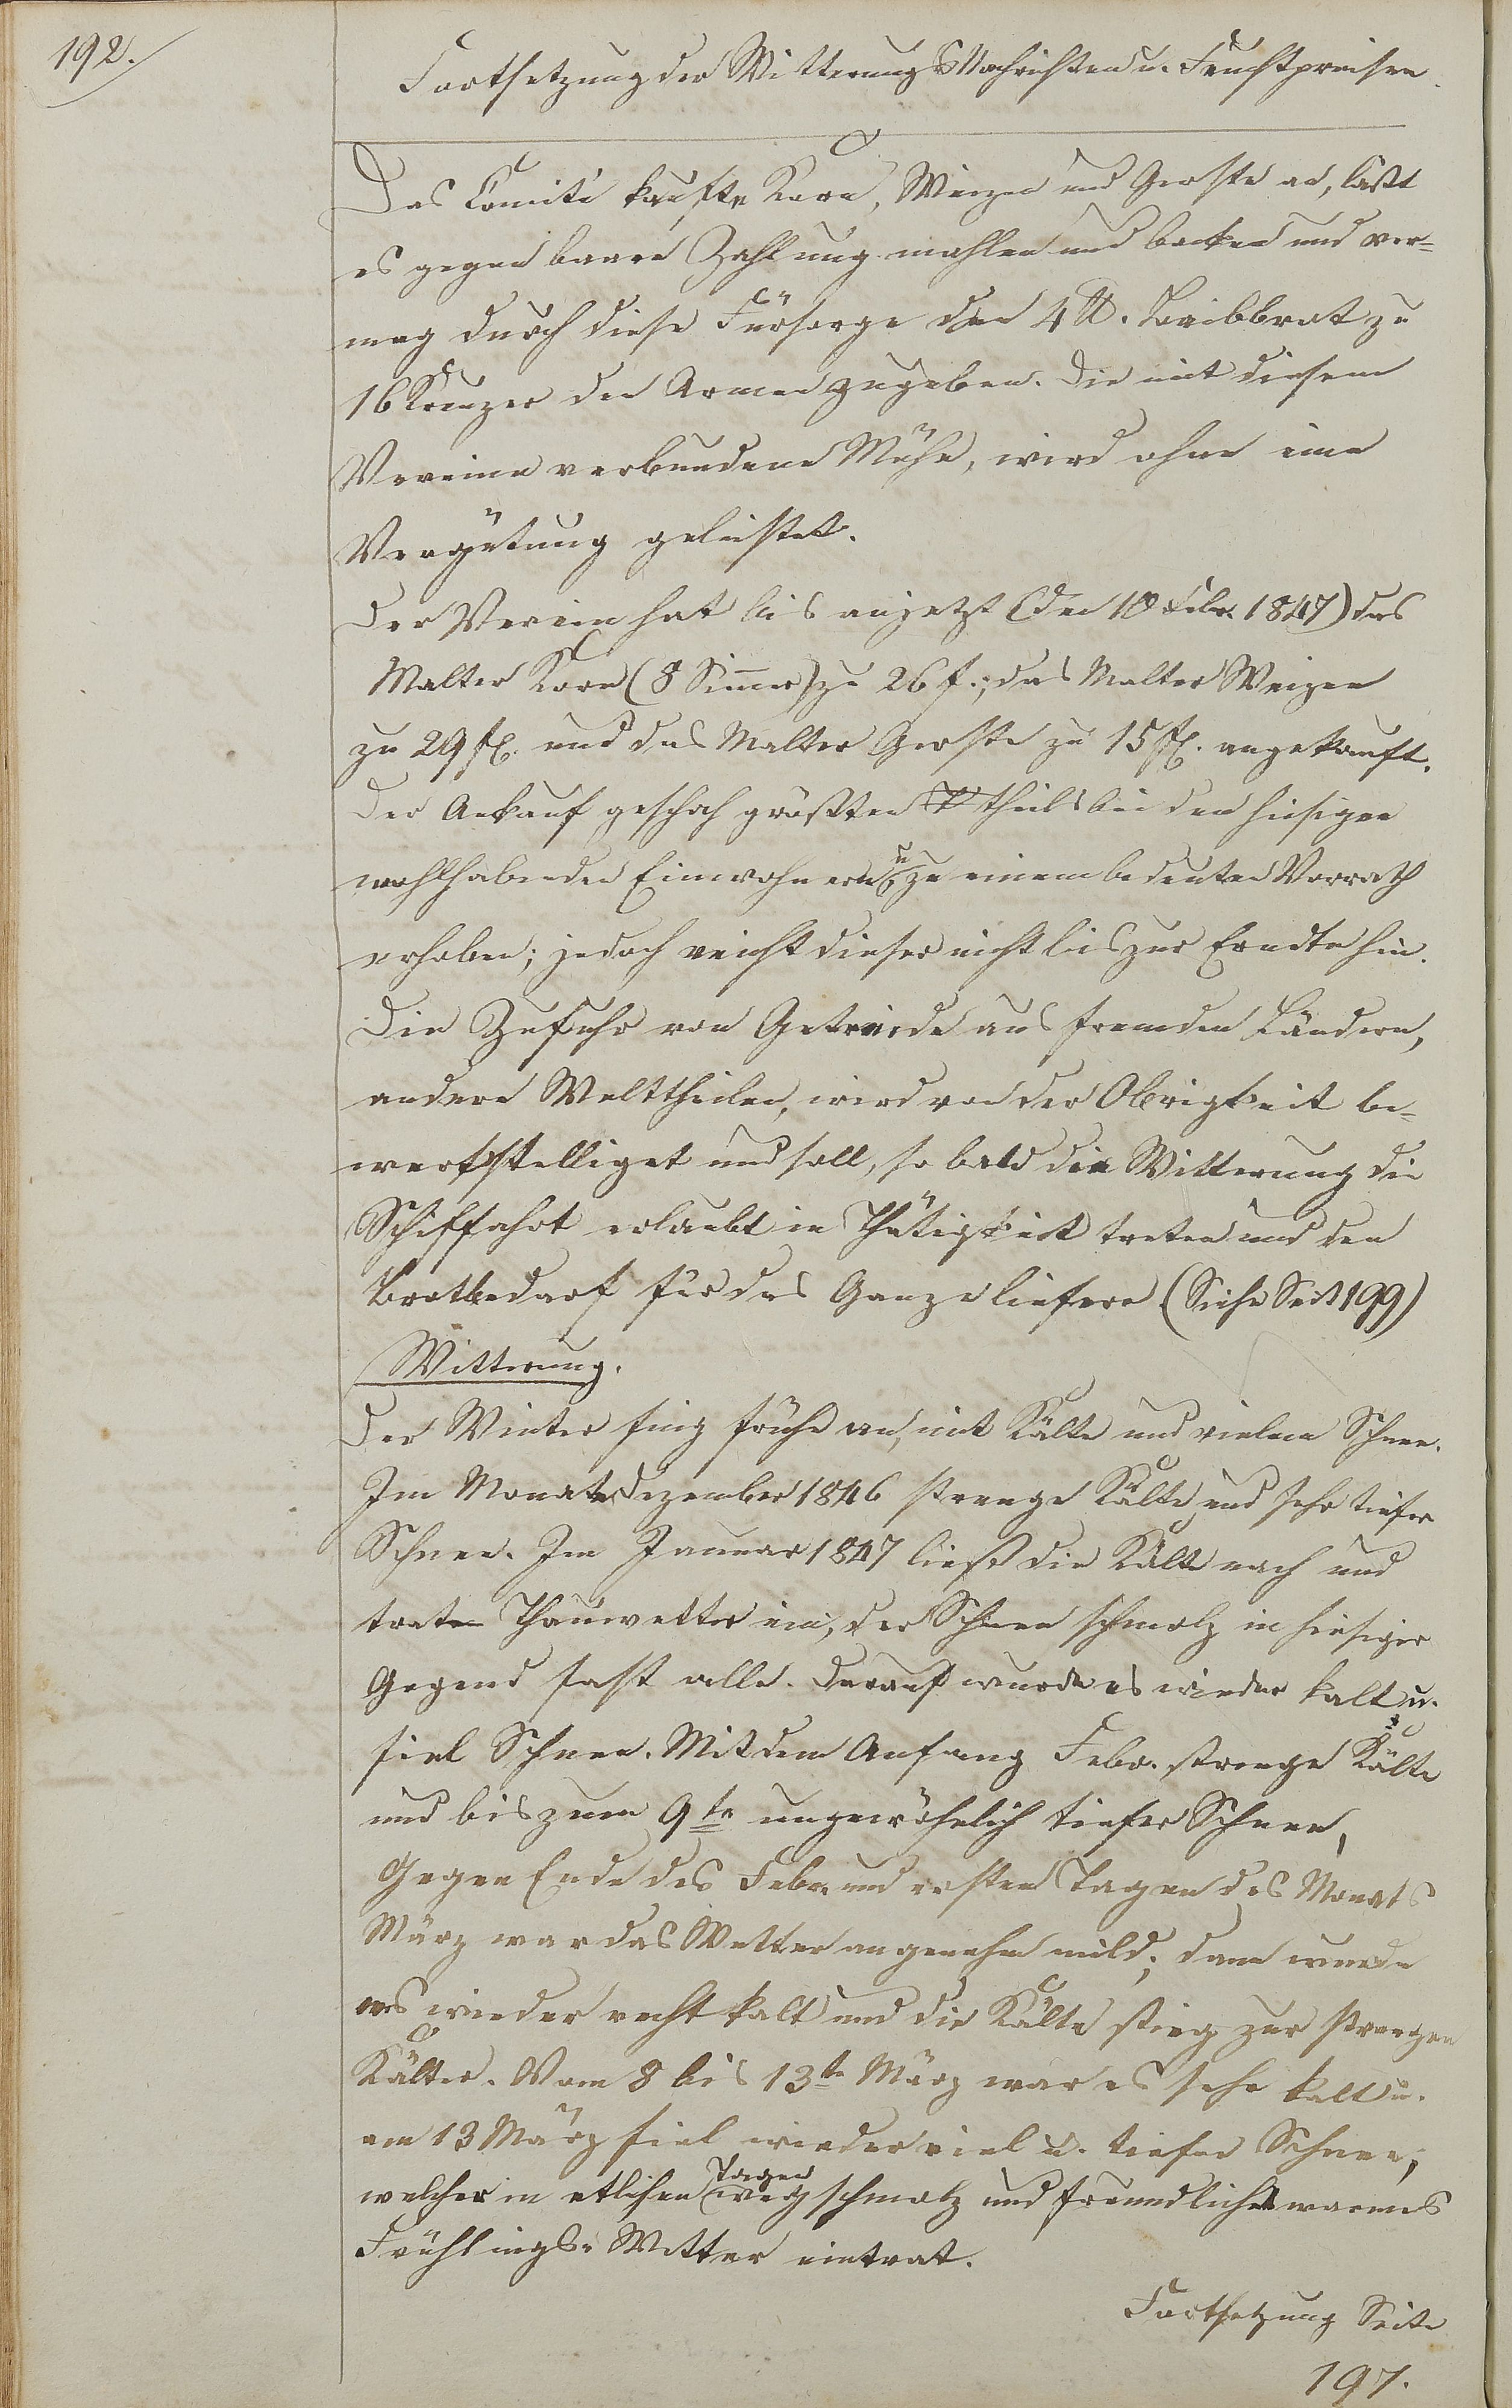 192.
Fortsetzung der Witterungs Nachrichten u. Fruchtpreisen.
Das Comite kaufte Korn, Weizen und Gerste an, läßt
es gegen baare Zahlung mahlen und backen und ver=
mag durch diese Fürsorge den 4 ℔. Laibbrot zu
16 Kreuzer den Armen zugeben. Die mit diesem
Vereine verbundene Mühe, wird ohne eine
Vergütung geleistet.
Der Verein hat bis anjetzt (den 10 Febr. 1847) das
Malter Korn (8 Simer) zu 26 f.; das Malter Weizen
zu 29 fl. und das Malter Gerste zu 15 fl. angekauft.
Der Ankauf geschah größten theils bei den hiesigen
wohlhabenden Einwohnern u zu einem bedeuten Vorrath
erhoben; jedoch reicht dieser nicht bis zur Erndte hin.
Die Zufuhr von Getreide aus fremden Ländern,
andern Welttheilen, wird von der Obrigkeit be=
werkstelliget und soll, so bald die Witterung die
Schiffahrt erlaubt in Thätigkeit treten und den
Brotbedarf für das Ganze liefern (Siehe Seit 199)
Witterung.
Der Winter fing frühe an, mit Kälte und vielem Schnee.
Im Monat Dezember 1846 strenge Kälte und sehr tiefer
Schnee. Im Januar 1847 ließ die Kälte nach und
trat Thauwetter ein, der Schnee schmolz in hiesiger
Gegend fast alle. Darauf wurde es wieder kalt u.
fiel Schnee. Mit dem Anfang Febr. strenge Kälte
und bis zum 9te ungewöhnlich tiefer Schnee,
Gegen Ende des Febr. und ersten Tagen des Monats
März war das Wetter angenehm mild; dann wurde
es wieder recht kalt und die Kälte stieg zur strengen
Kälte. Vom 8 bis 13te März war es sehr kalt u.
am 13 März fiel wieder viel u. tiefer Schnee,
welcher in etlichen Tagen weg schmolz und freundliches warmes
Frühlings-Wetter eintrat.
Fortsetzung Seite
197.